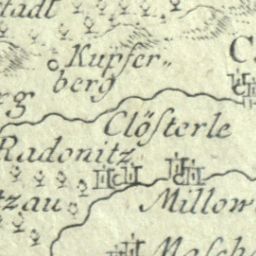 stadt
Kupfer=
berg
Clösterle
Radonitz
tzau
Millow
Masch